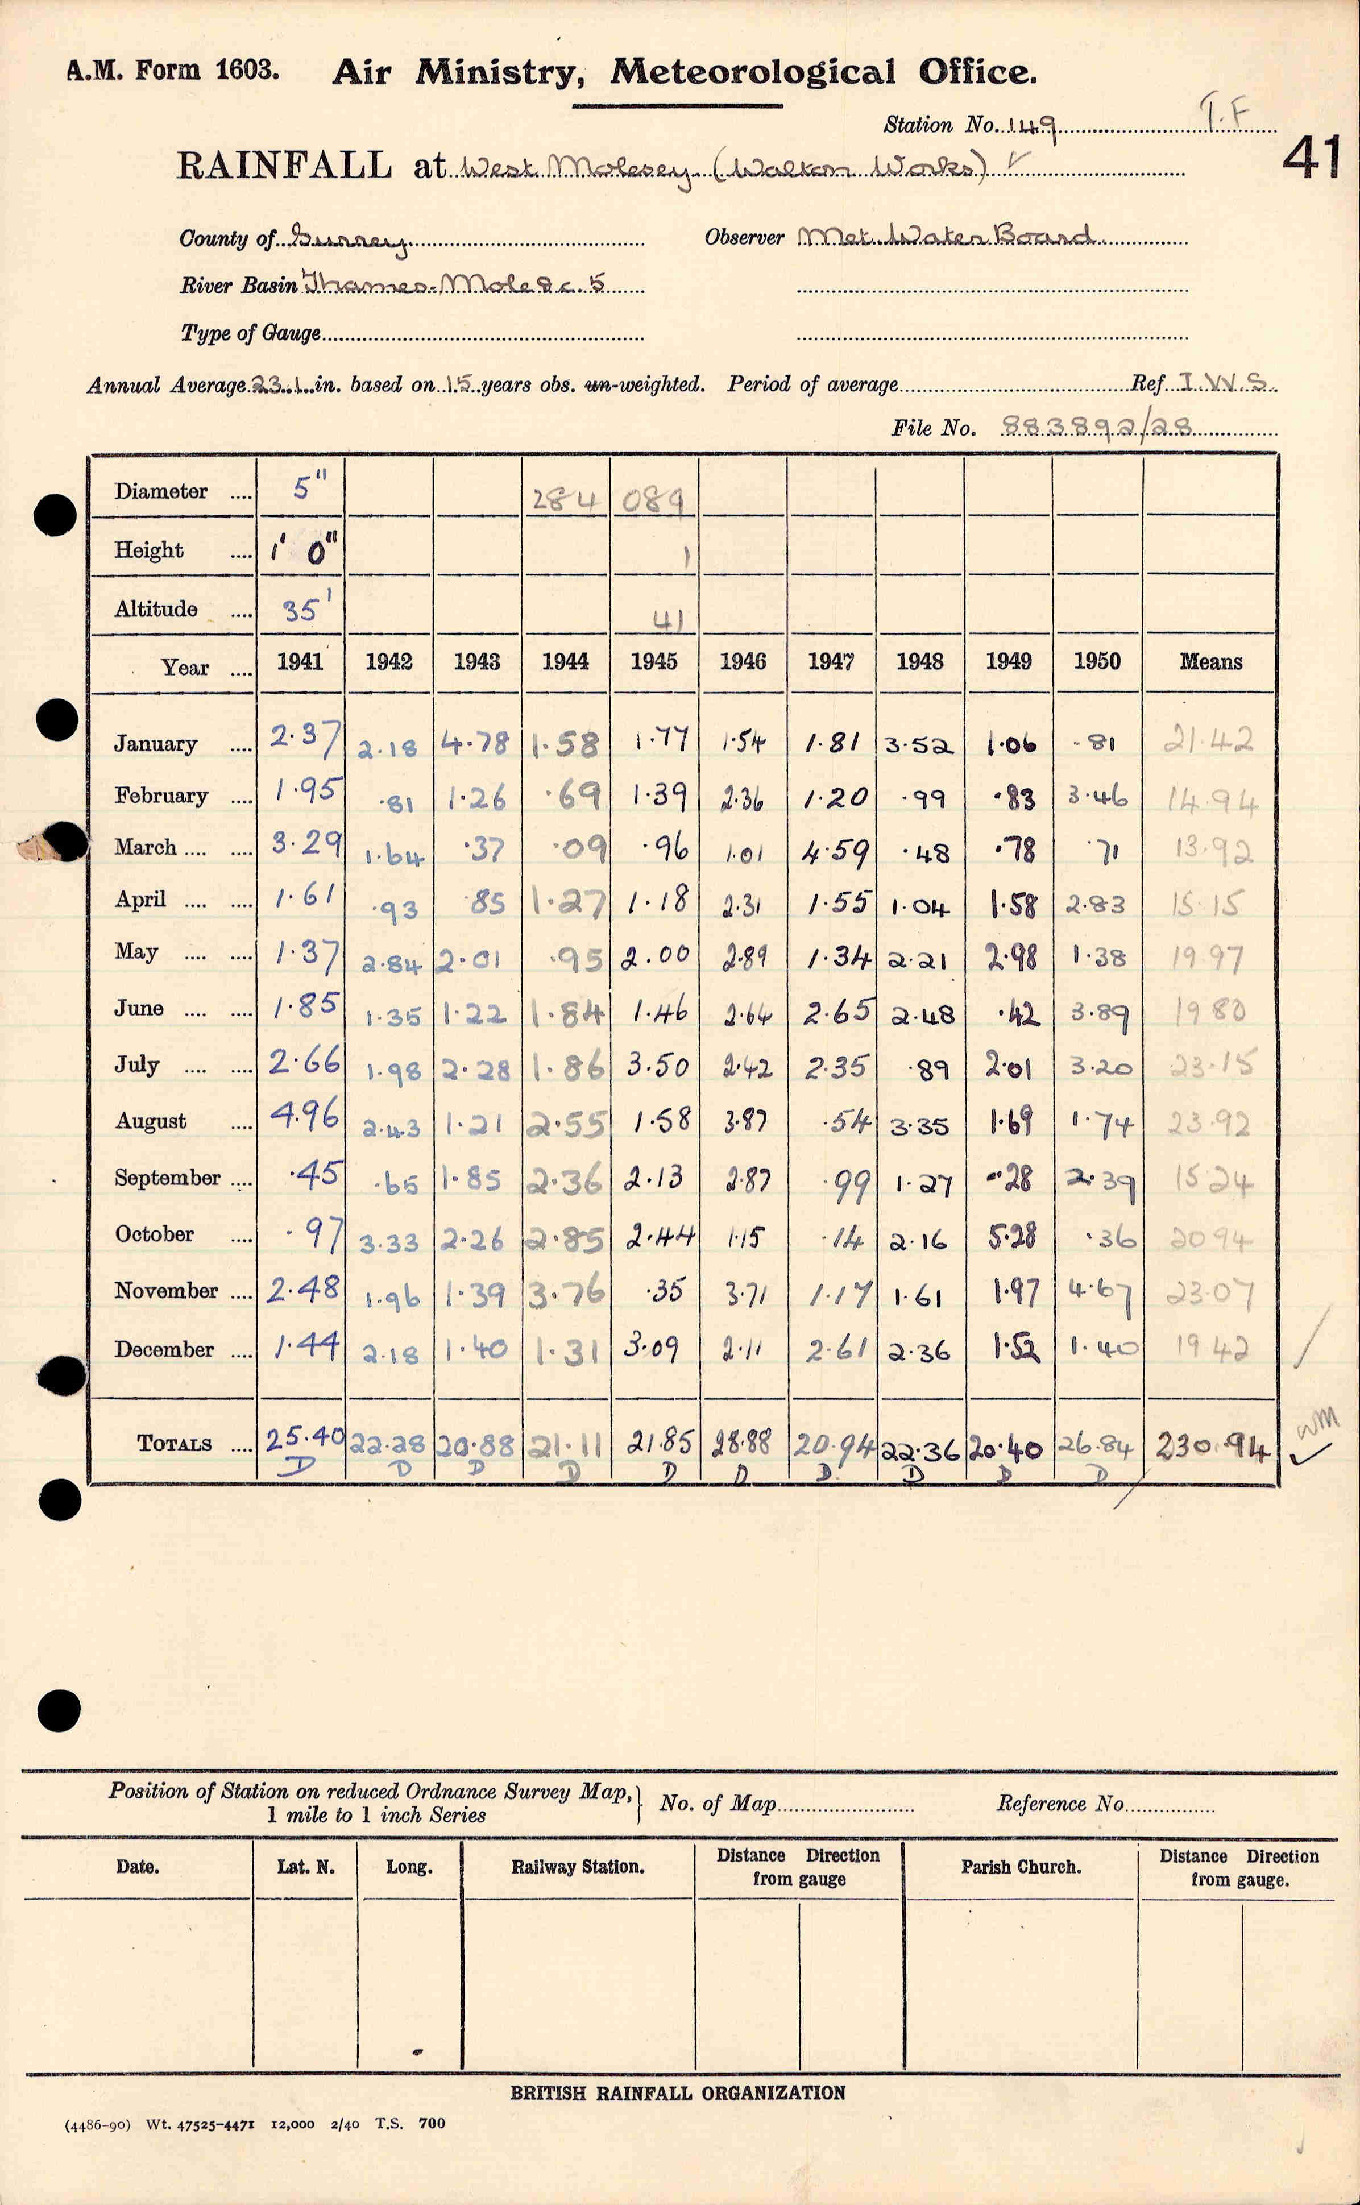 A.M. Form 1603. Air Ministry, Meteorological Office.
Station No. 149 T.F
41
RAINFALL at West Molesey (Walton Works) ✓
County of Surrey Observer Met. Water Board
River Basin Thames-Mole &c. 5
Type of Gauge
Annual Average 23.1 in. based on 15 years obs. un-weighted. Period of average Ref. I.W.S.
File No. 883892/28
Diameter .... 5" 284 089
Height .... 1' 0" 1
Altitude .... 35' 41
Year .... 1941 1942 1943 1944 1945 1946 1947 1948 1949 1950 Means
January .... 2.37 2.18 4.78 1.58 1.77 1.54 1.81 3.52 1.06 .81 21.42
February .... 1.95 .81 1.26 .69 1.39 2.36 1.20 .99 .83 3.46 14.94
March .... .... 3.29 1.64 .37 .09 .96 1.01 4.59 .48 .78 .71 13.92
April .... .... 1.61 .93 .85 1.27 1.18 2.31 1.55 1.04 1.58 2.83 15.15
May .... .... 1.37 2.84 2.01 .95 2.00 2.89 1.34 2.21 2.98 1.38 19.97
June .... .... 1.85 1.35 1.22 1.84 1.46 2.64 2.65 2.48 .42 3.89 19.80
July .... .... 2.66 1.98 2.28 1.86 3.50 2.42 2.35 .89 2.01 3.20 23.15
August .... 4.96 2.43 1.21 2.55 1.58 3.87 .54 3.35 1.69 1.74 23.92
September .... .45 .65 1.85 2.36 2.13 2.87 .99 1.27 .28 2.39 15.24
October .... .97 3.33 2.26 2.85 2.44 1.15 .14 2.16 5.28 .36 20.94
November .... 2.48 1.96 1.39 3.76 .35 3.71 1.17 1.61 1.97 4.67 23.07
December .... 1.44 2.18 1.40 1.31 3.09 2.11 2.61 2.36 1.52 1.40 19.42
TOTALS .... 25.40 22.28 20.88 21.11 21.85 28.88 20.94 22.36 20.40 26.84 230.94 WM ✓
D D D D D D D D D D
Position of Station on reduced Ordnance Survey Map, } No. of Map Reference No
1 mile to 1 inch Series
Date. Lat. N. Long. Railway Station. Distance from gauge Direction Parish Church. Distance Direction from gauge.
BRITISH RAINFALL ORGANIZATION
(4486-90) Wt. 47525-4471 12,000 2/40 T.S. 700